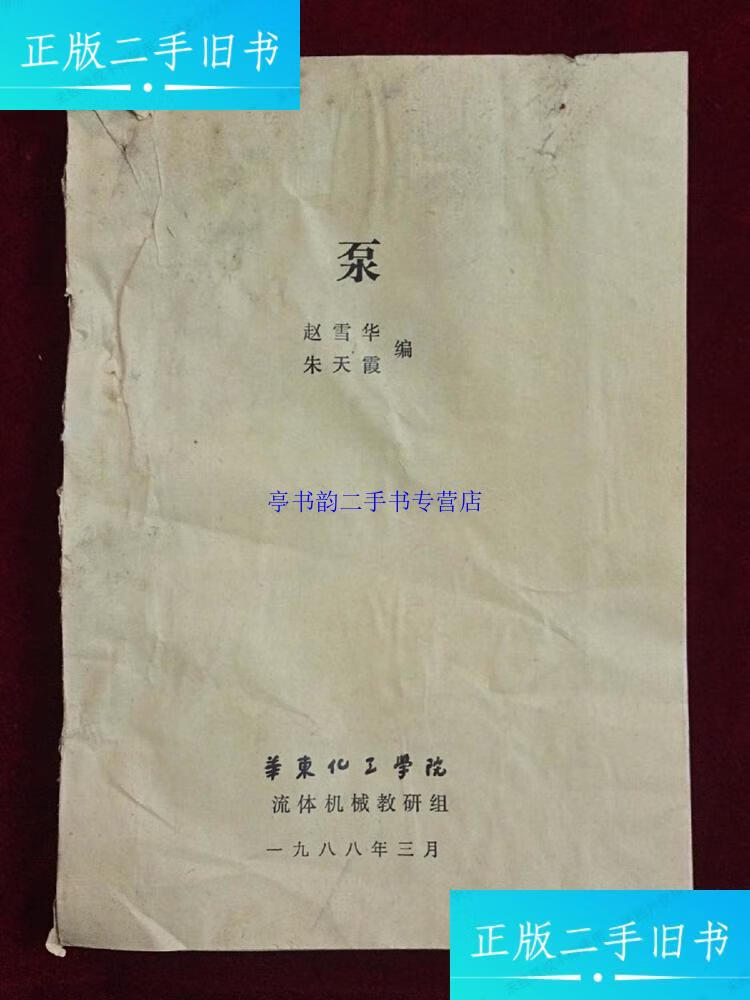 正版二手旧书
泵
赵雪华
朱天霞 编
亭书韵二手书专营店
華東化工學院
流体机械教研组
一九八八年三月
正版二手旧书